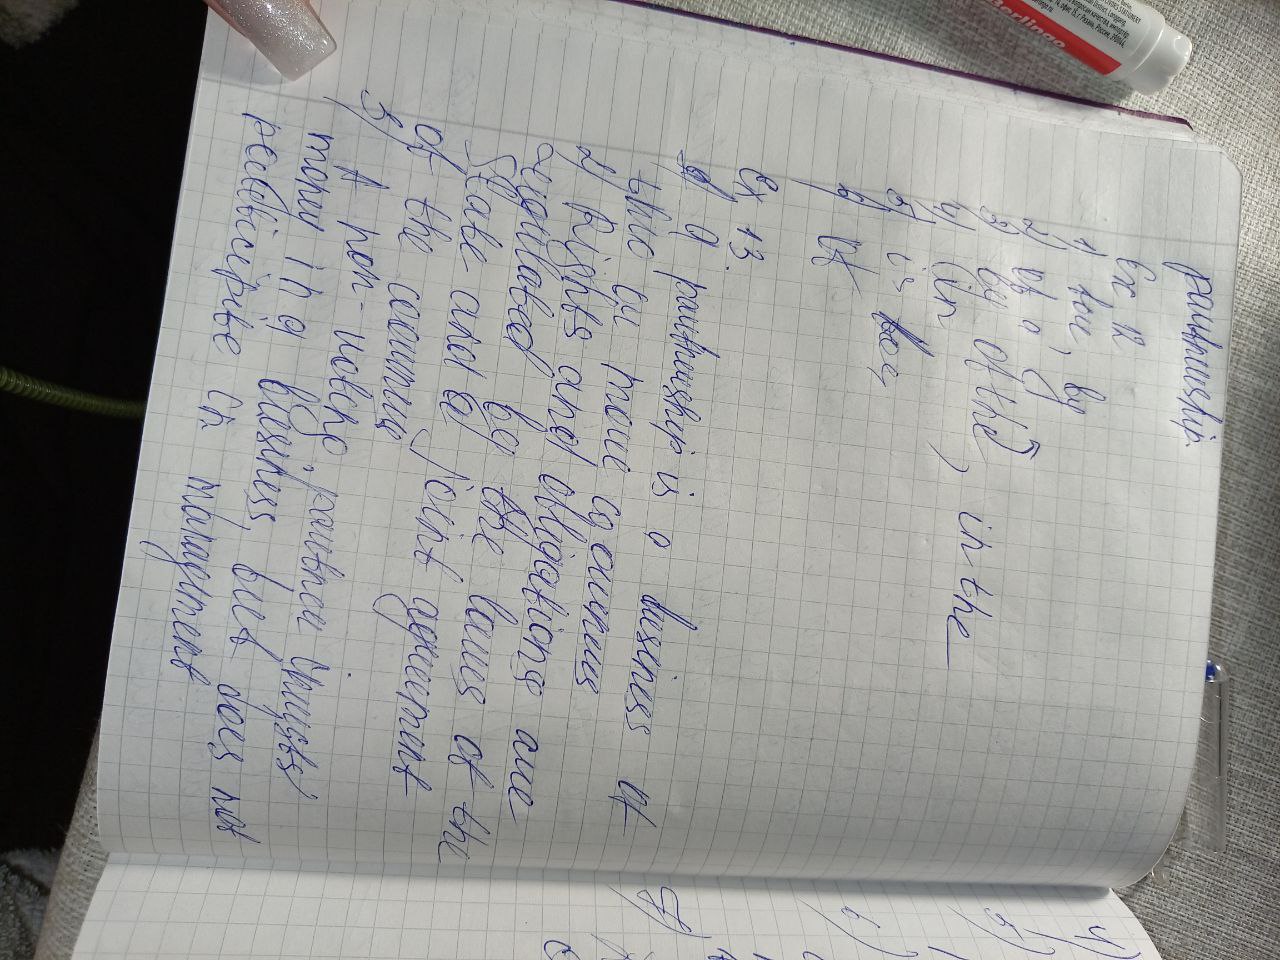 partnership.
Ex 12
1) for, by
2) of a
3) by of the
4) in, in the
5) is
6) of
Ex 13.
1) A partnership is a business of
two or more coowners
2) Rights and obligations are
regulated by the laws of the
State and a joint agreement
of the coowners
3) A non-active partner invests
money in a business, but does not
participate in management
4)
5)
6)
Berlingo